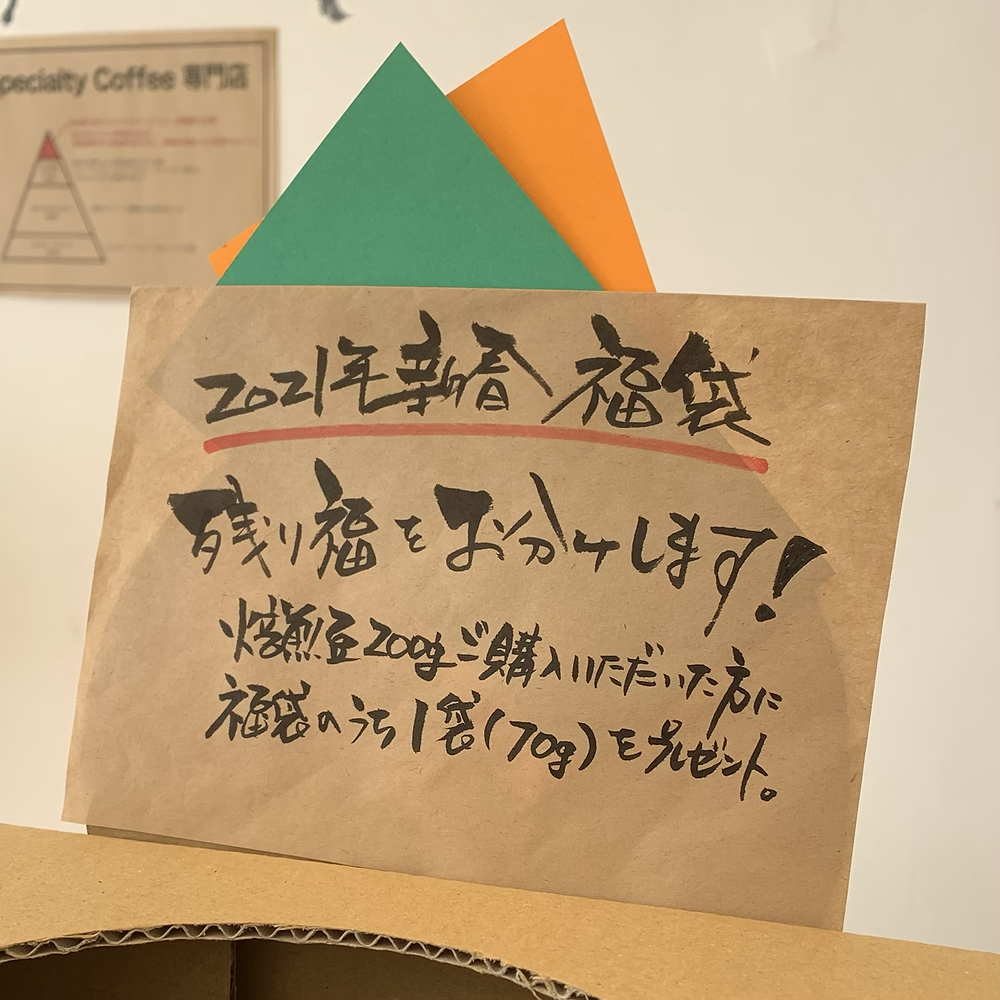 pecialty Coffee 専門店
2021年新春 福袋
残り福をお分けします!
焙煎豆200gご購入いただいた方に
福袋のうち1袋(70g)をプレゼント。